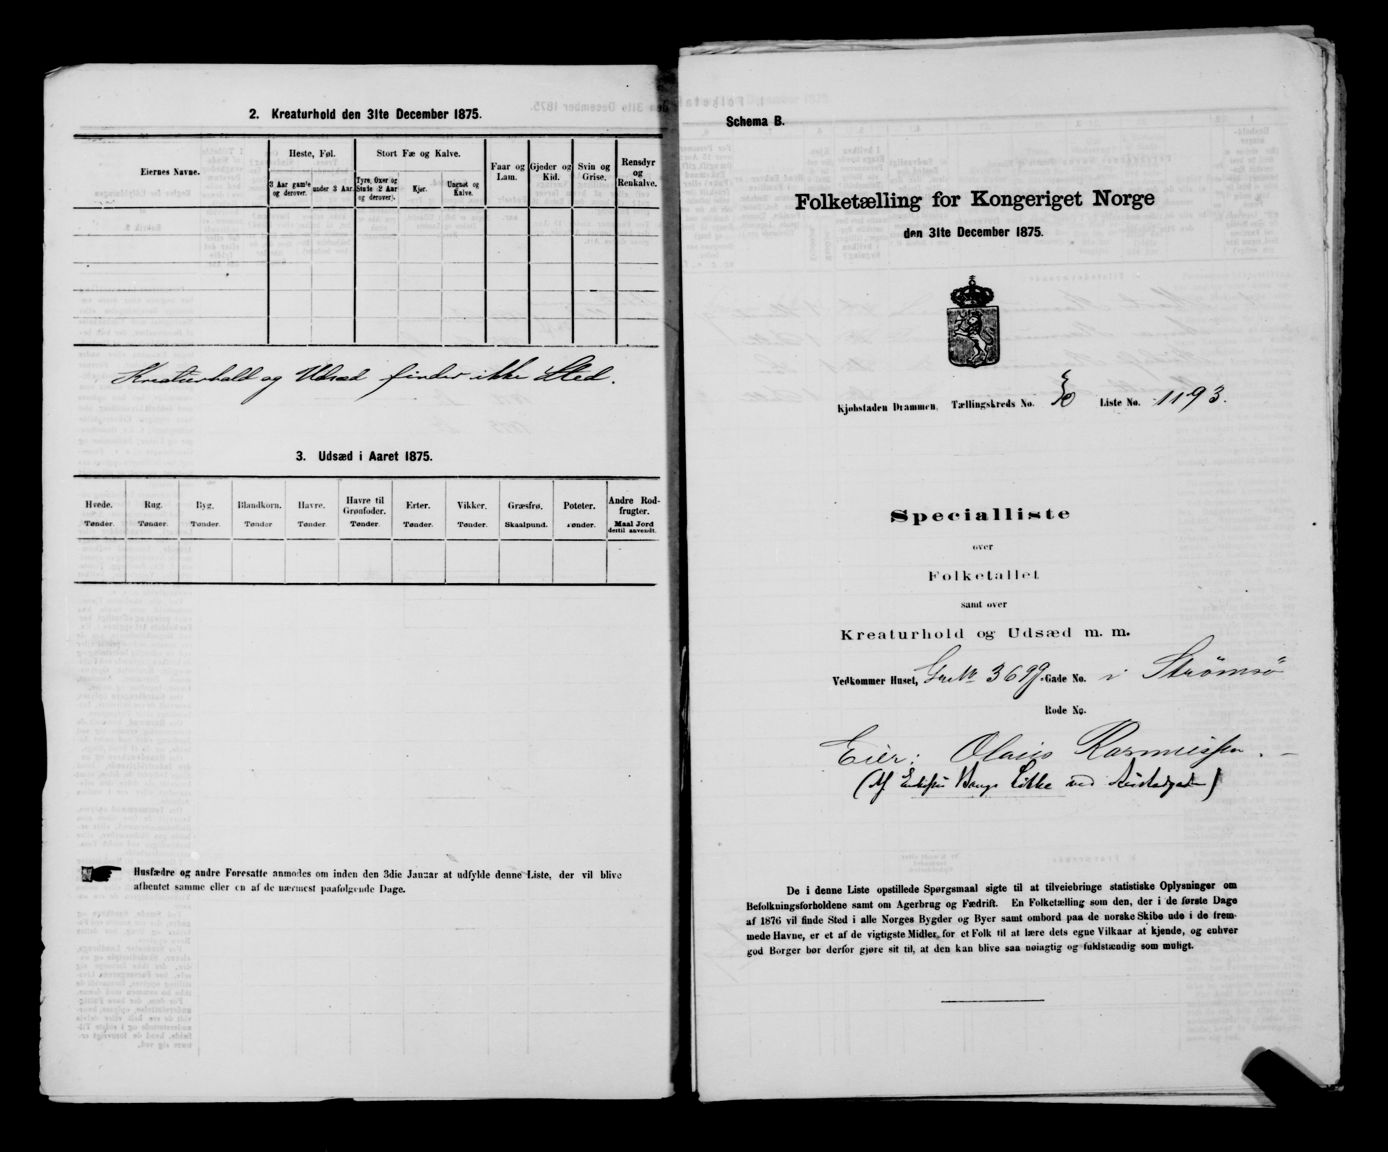 2. Kreaturhold den 31te December 1875.
Eiernes Navne.
Heste, Føl.
3 Aar gamle og derover.
under 3 Aar.
Stort Fæ og Kalve.
Tyre, Oxer og Stude (2 Aar og derover).
Kjør.
Ungnøt og Kalve.
Faar og Lam.
Gjeder og Kid.
Svin og Grise.
Rensdyr og Renkalve.
Kreaturhold og Udsæd finder ikke Sted.
3. Udsæd i Aaret 1875.
Hvede. Rug. Byg. Blandkorn. Havre. Havre til Grønfoder. Erter. Vikker. Græsfrø. Poteter. Andre Rodfrugter.
Tønder. Tønder. Tønder. Tønder Tønder. Tønder. Tønder. Tønder. Skaalpund. Tønder. Maal Jord dertil anvendt.
Husfædre og andre Foresatte anmodes om inden den 3die Januar at udfylde denne Liste, der vil blive
afhentet samme eller en af de nærmest paafølgende Dage.
Schema B.
Folketælling for Kongeriget Norge
den 31te December 1875.
Kjøbstaden Drammen, Tællingskreds No. Liste No. 1193.
Specialliste
over
Folketallet
samt over
Kreaturhold og Udsæd m. m.
Vedkommer Huset, Gade No. i Strømsö
Rode No.
Eier: Olaus Rasmussen.
De i denne Liste opstillede Spørgsmaal sigte til at tilveiebringe statistiske Oplysninger om
Befolkningsforholdene samt om Agerbrug og Fædrift. En Folketælling som den, der i de første Dage
af 1876 vil finde Sted i alle Norges Bygder og Byer samt ombord paa de norske Skibe ude i de frem-
mede Havne, er et af de vigtigste Midler for et Folk til at lære dets egne Vilkaar at kjende, og enhver
god Borger bør derfor gjøre sit til, at den kan blive saa nøiagtig og fuldstændig som muligt.